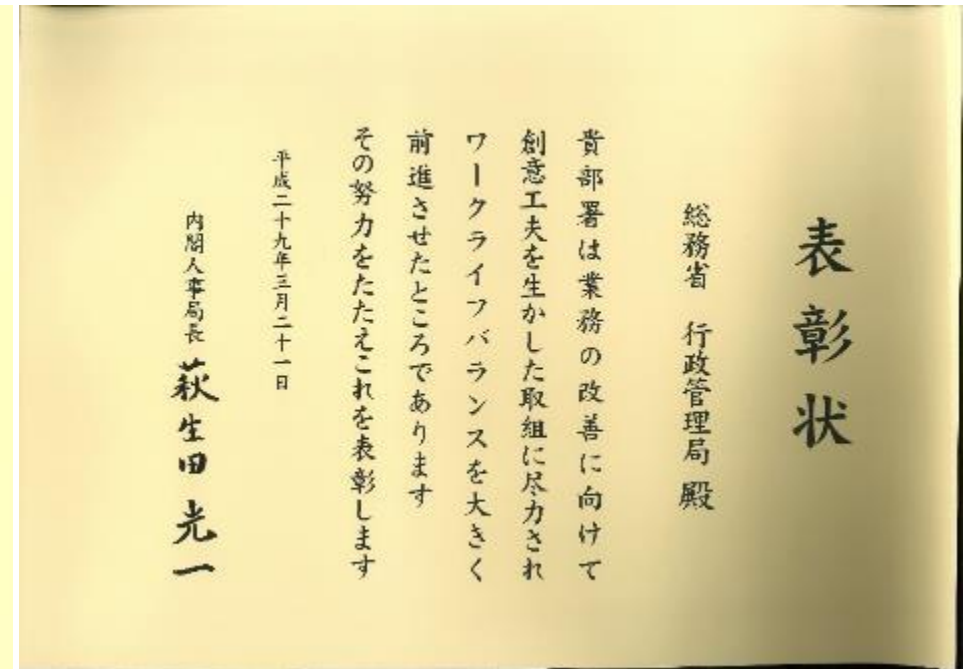 表彰状
総務省　行政管理局　殿
貴部署は業務の改善に向けて
創意工夫を生かした取組に尽力され
ワークライフバランスを大きく
前進させたところであります
その努力をたたえこれを表彰します
平成二十九年三月二十一日
内閣人事局長　萩生田光一